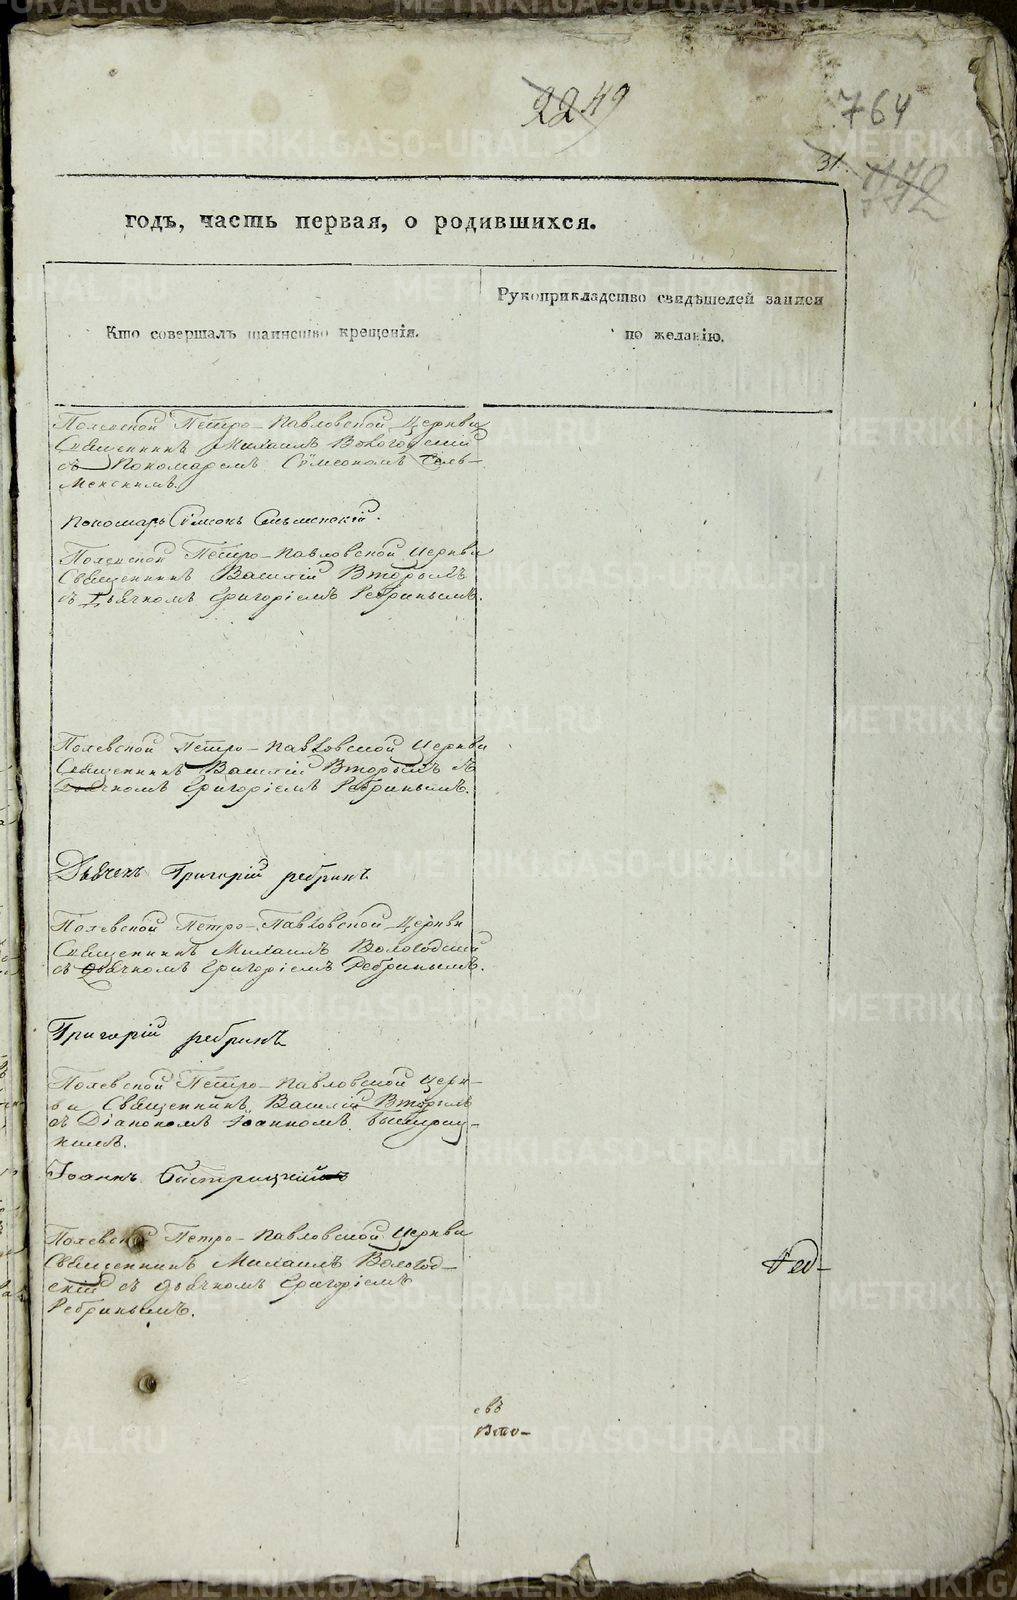 2249
764
31.
годъ, часть первая, о родившихся.
Кто совершалъ таинство крещенія.
Рукоприкладство свидѣтелей записи
по желанію.
Полевской Петро-Павловской Церкви
Священникъ Михаилъ Вологодскій
съ Пономаремъ Сѵмеономъ Сель-
менскимъ.
Пономарь Сѵмеонъ Сельменскій.
Полевской Петро-Павловской Церкви
Священникъ Василій Вторыхъ
съ Дьячкомъ Григоріемъ Ребринымъ.
Полевской Петро-Павловской Церкви
Священникъ Василій Вторыхъ съ
Дьячкомъ Григоріемъ Ребринымъ.
Дьячекъ Григорій ребринъ
Полевской Петро-Павловской Церкви
Священникъ Михаилъ Вологодскій
съ дьячкомъ Григоріемъ Ребринымъ.
Григорій ребринъ
Полевской Петро-Павловской Церк-
ви Священникъ Василій Вторыхъ
съ Діакономъ Іоанномъ Быстриц-
кимъ.
Іоаннъ Быстрицкій
Полевской Петро-Павловской Церкви
Священникъ Михаилъ Вологод-
скій съ дьячкомъ Григоріемъ
Ребринымъ.
евъ
Вто-
METRIKI.GASO-URAL.RU